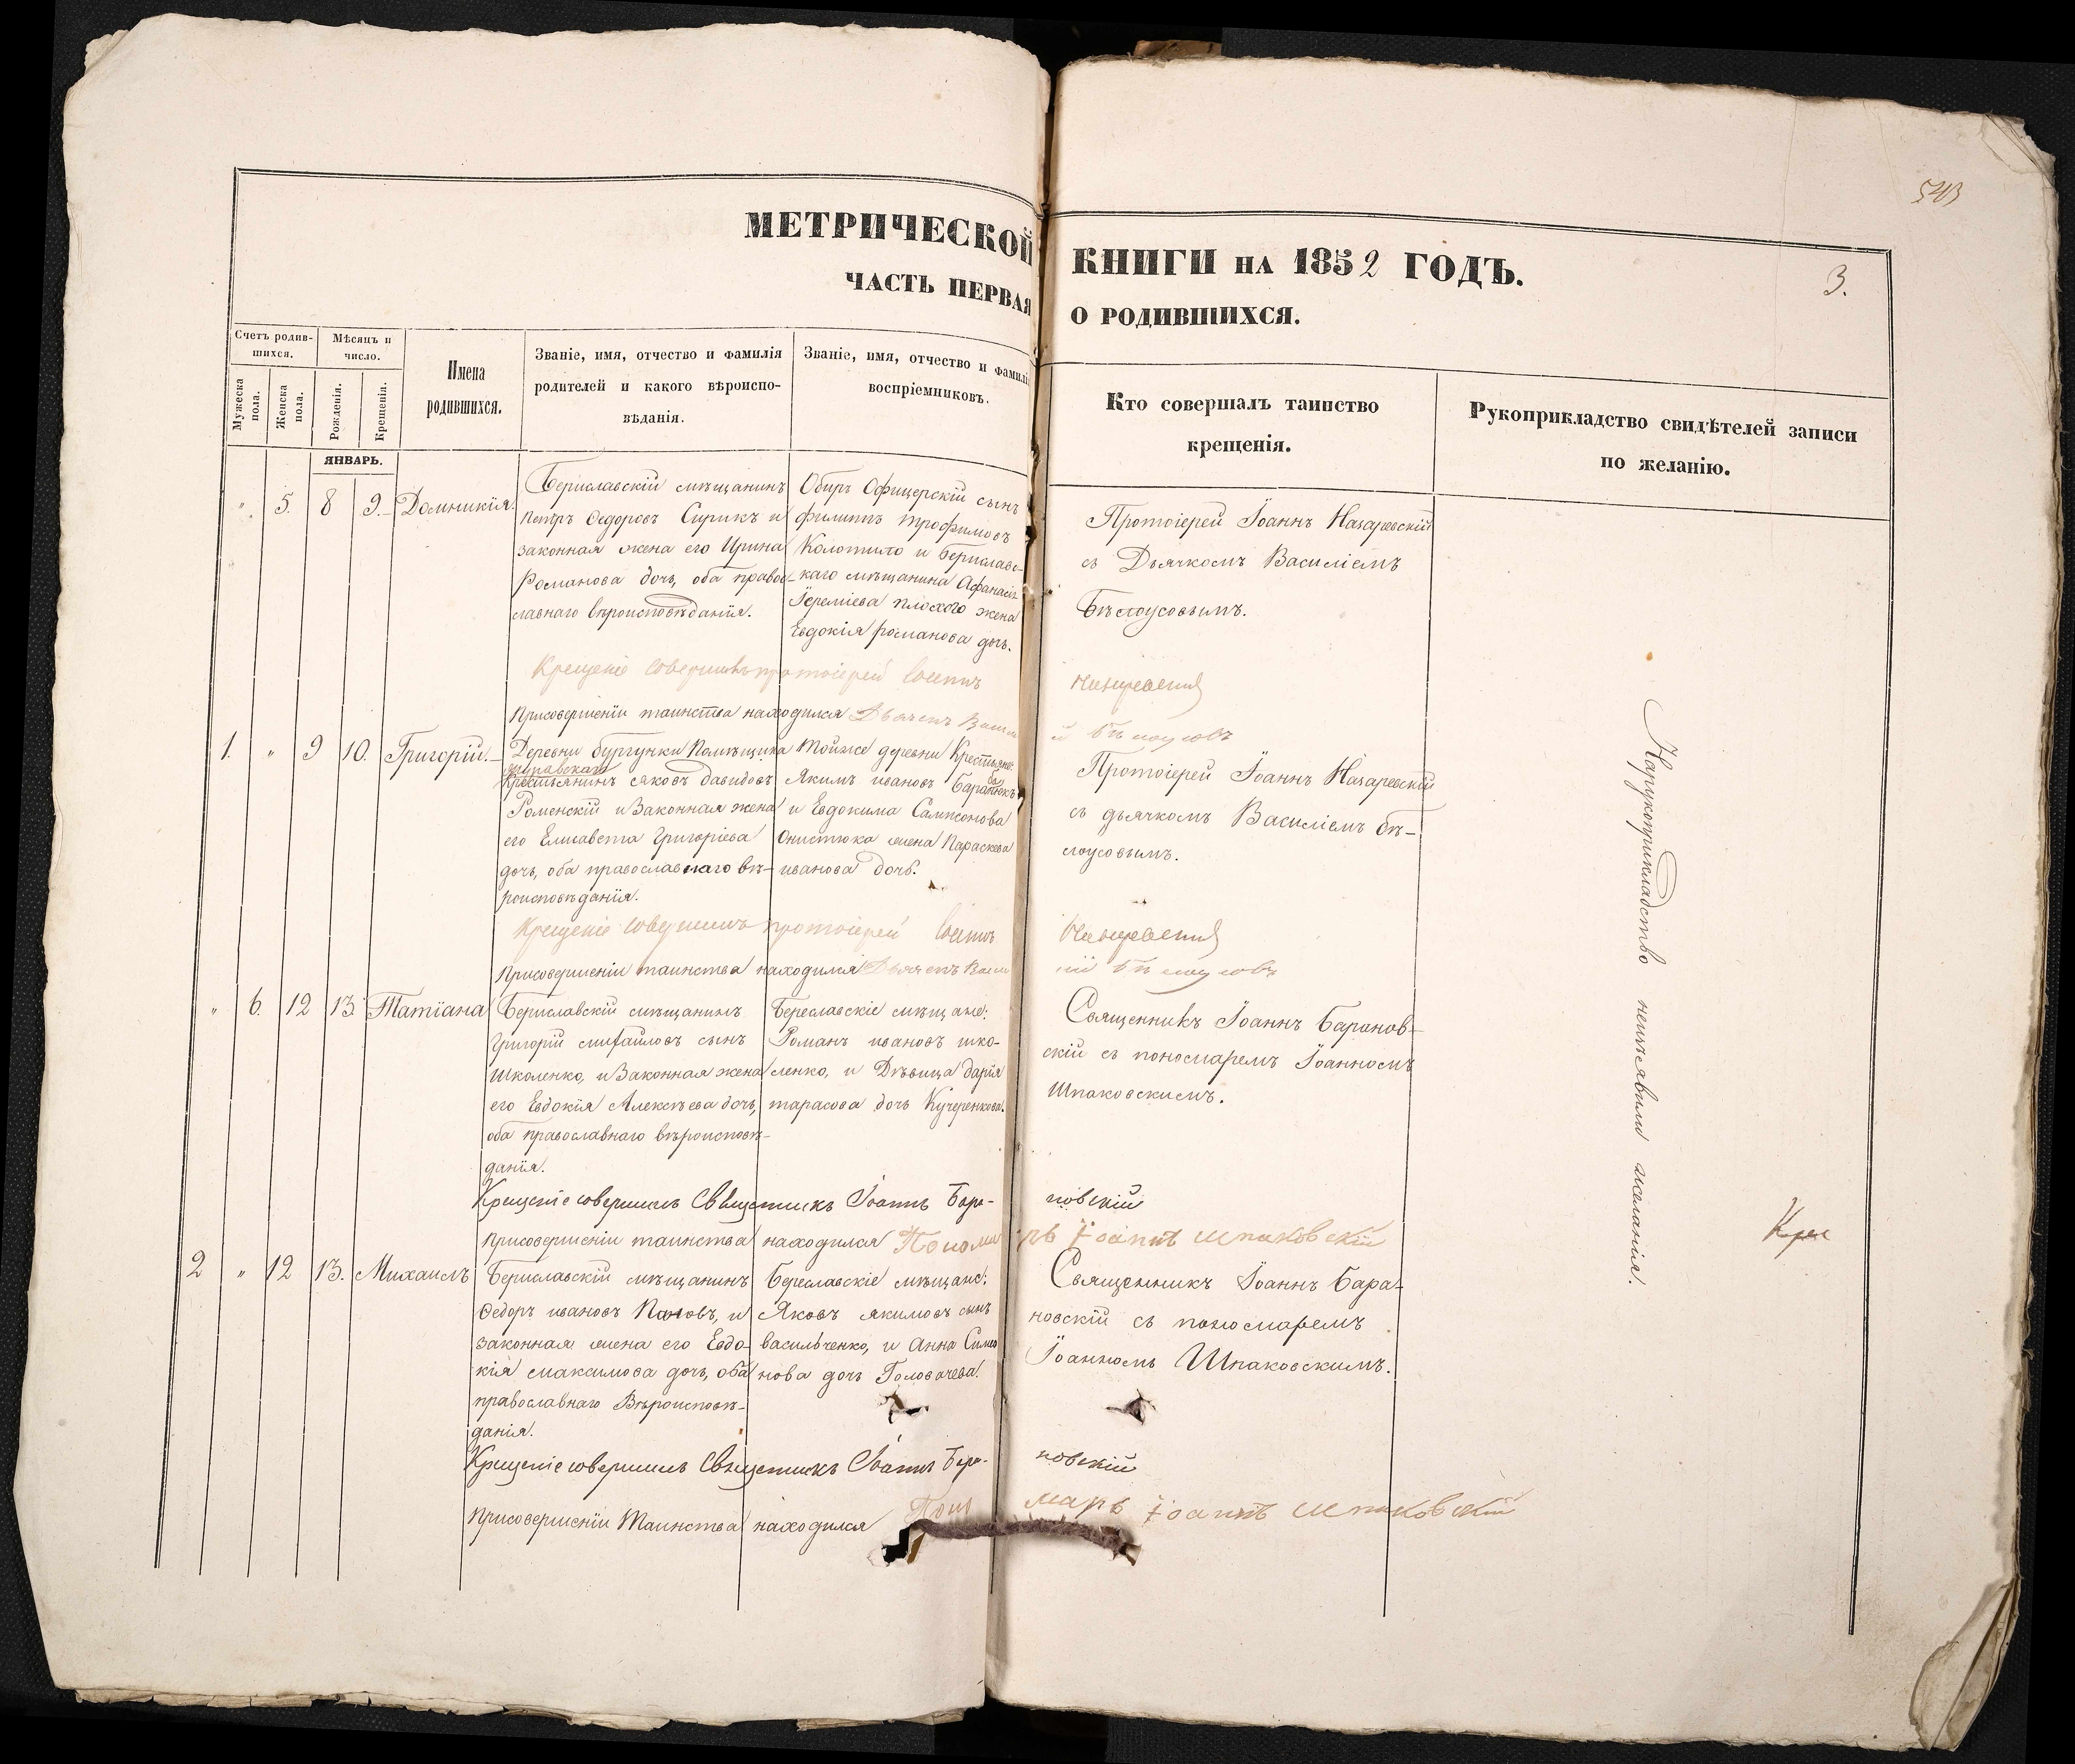 543
МЕТРИЧЕСКОЙ КНИГИ НА 1852 ГОДЪ.
3.
ЧАСТЬ ПЕРВАЯ О РОДИВШИХСЯ.
Счетъ родив-
шихся.
Мужеска
пола.
Женска
пола.
Мѣсяцъ и
число.
Рожденія.
Крещенія.
Имена
родившихся.
Званіе, имя, отчество и фамилія
родителей и какого вѣроиспо-
вѣданія.
Званіе, имя, отчество и фамилія
воспріемниковъ.
Кто совершалъ таинство
крещенія.
Рукоприкладство свидѣтелей записи
по желанію.
ЯНВАРЬ.
" 5. 8 9. Домникія.
Бериславскій мѣщанинъ
Петръ Ѳедоровъ Сирикъ и
законная жена его Ирина
Романова дочь, оба право-
славнаго вѣроисповѣданія.
Оберъ Офицерскій сынъ
Филиппъ Трофимовъ
Колотило и Бериславс-
каго мѣщанина Афанасія
Іереміева Плохого жена
Евдокія Романова дочь.
Протоіерей Іоаннъ Назаревскій
съ Дьячкомъ Василіемъ
Бѣлоусовымъ.
Крещеніе совершилъ протоіерей Іоаннъ Назаревскій
Присовершеніи таинства находился Дьячекъ Василій Бѣлоусовъ
1. " 9 10. Григорій.
Деревни Бургунки Помѣщика
Крестьянинъ Яковъ Давидовъ
Роменскій и Законная жена
его Елисавета Григоріева
дочь, оба православнаго вѣ-
роисповѣданія.
Тойже деревни Крестьяне:
Якимъ Ивановъ
и Евдокима Сампсонова
Онистюка жена Параскева
Иванова дочь.
Протоіерей Іоаннъ Назаревскій
съ дьячкомъ Василіемъ Бѣ-
лоусовымъ.
Крещеніе совершилъ протоіерей Іоаннъ Назаревскій
Присовершеніи таинства находился Дьячекъ Василій Бѣлоусовъ
" 6. 12 13. Татіана
Бериславскій мѣщанинъ
Григорій Михайловъ сынъ
Школенко, и Законная жена
его Евдокія Алексѣева дочь,
оба православнаго вѣроисповѣ-
данія.
Береславскіе мѣщане:
Романъ Ивановъ Шко-
ленко, и Дѣвица Дарія
Тарасова дочь Кучеренкова.
Священникъ Іоаннъ Баранов-
скій съ пономаремъ Іоанномъ
Шпаковскимъ.
Крещеніе совершилъ Священникъ Іоаннъ Бара- новскій
Присовершеніи таинства находился Пономарь Іоаннъ Шпаковскій
2 " 12 13. Михаилъ
Бериславскій мѣщанинъ
Ѳедоръ Ивановъ Поповъ, и
законная жена его Евдо-
кія Максимова дочь, оба
православнаго Вѣроисповѣ-
данія.
Береславскіе мѣщане:
Яковъ Якимовъ сынъ
Васильченко, и Анна Симео
нова дочь Головачева.
Священникъ Іоаннъ Бара-
новскій съ пономаремъ
Іоанномъ Шпаковскимъ.
Крещеніе совершилъ Священникъ Іоаннъ Бара- новскій
Присовершеніи Таинства находился Пономарь Іоаннъ Шпаковскій
Нарукоприкладство неизъявили желанія.
Крес